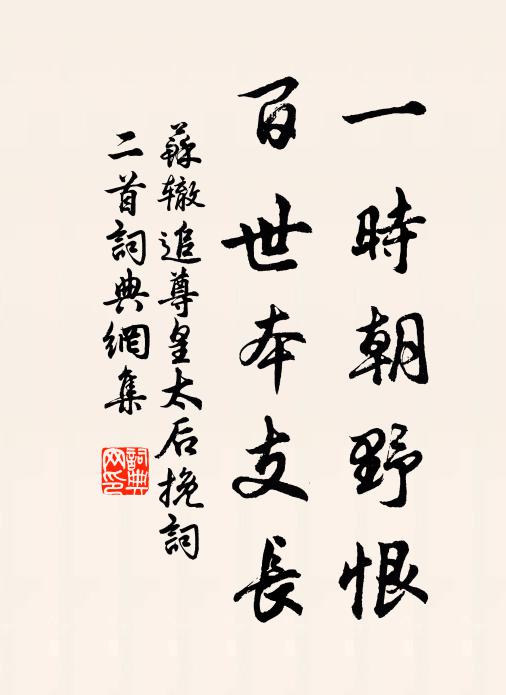 一時朝野恨
百世本支長
蘇轍追尊皇太后挽詞
二首詞典網集
詞典网印